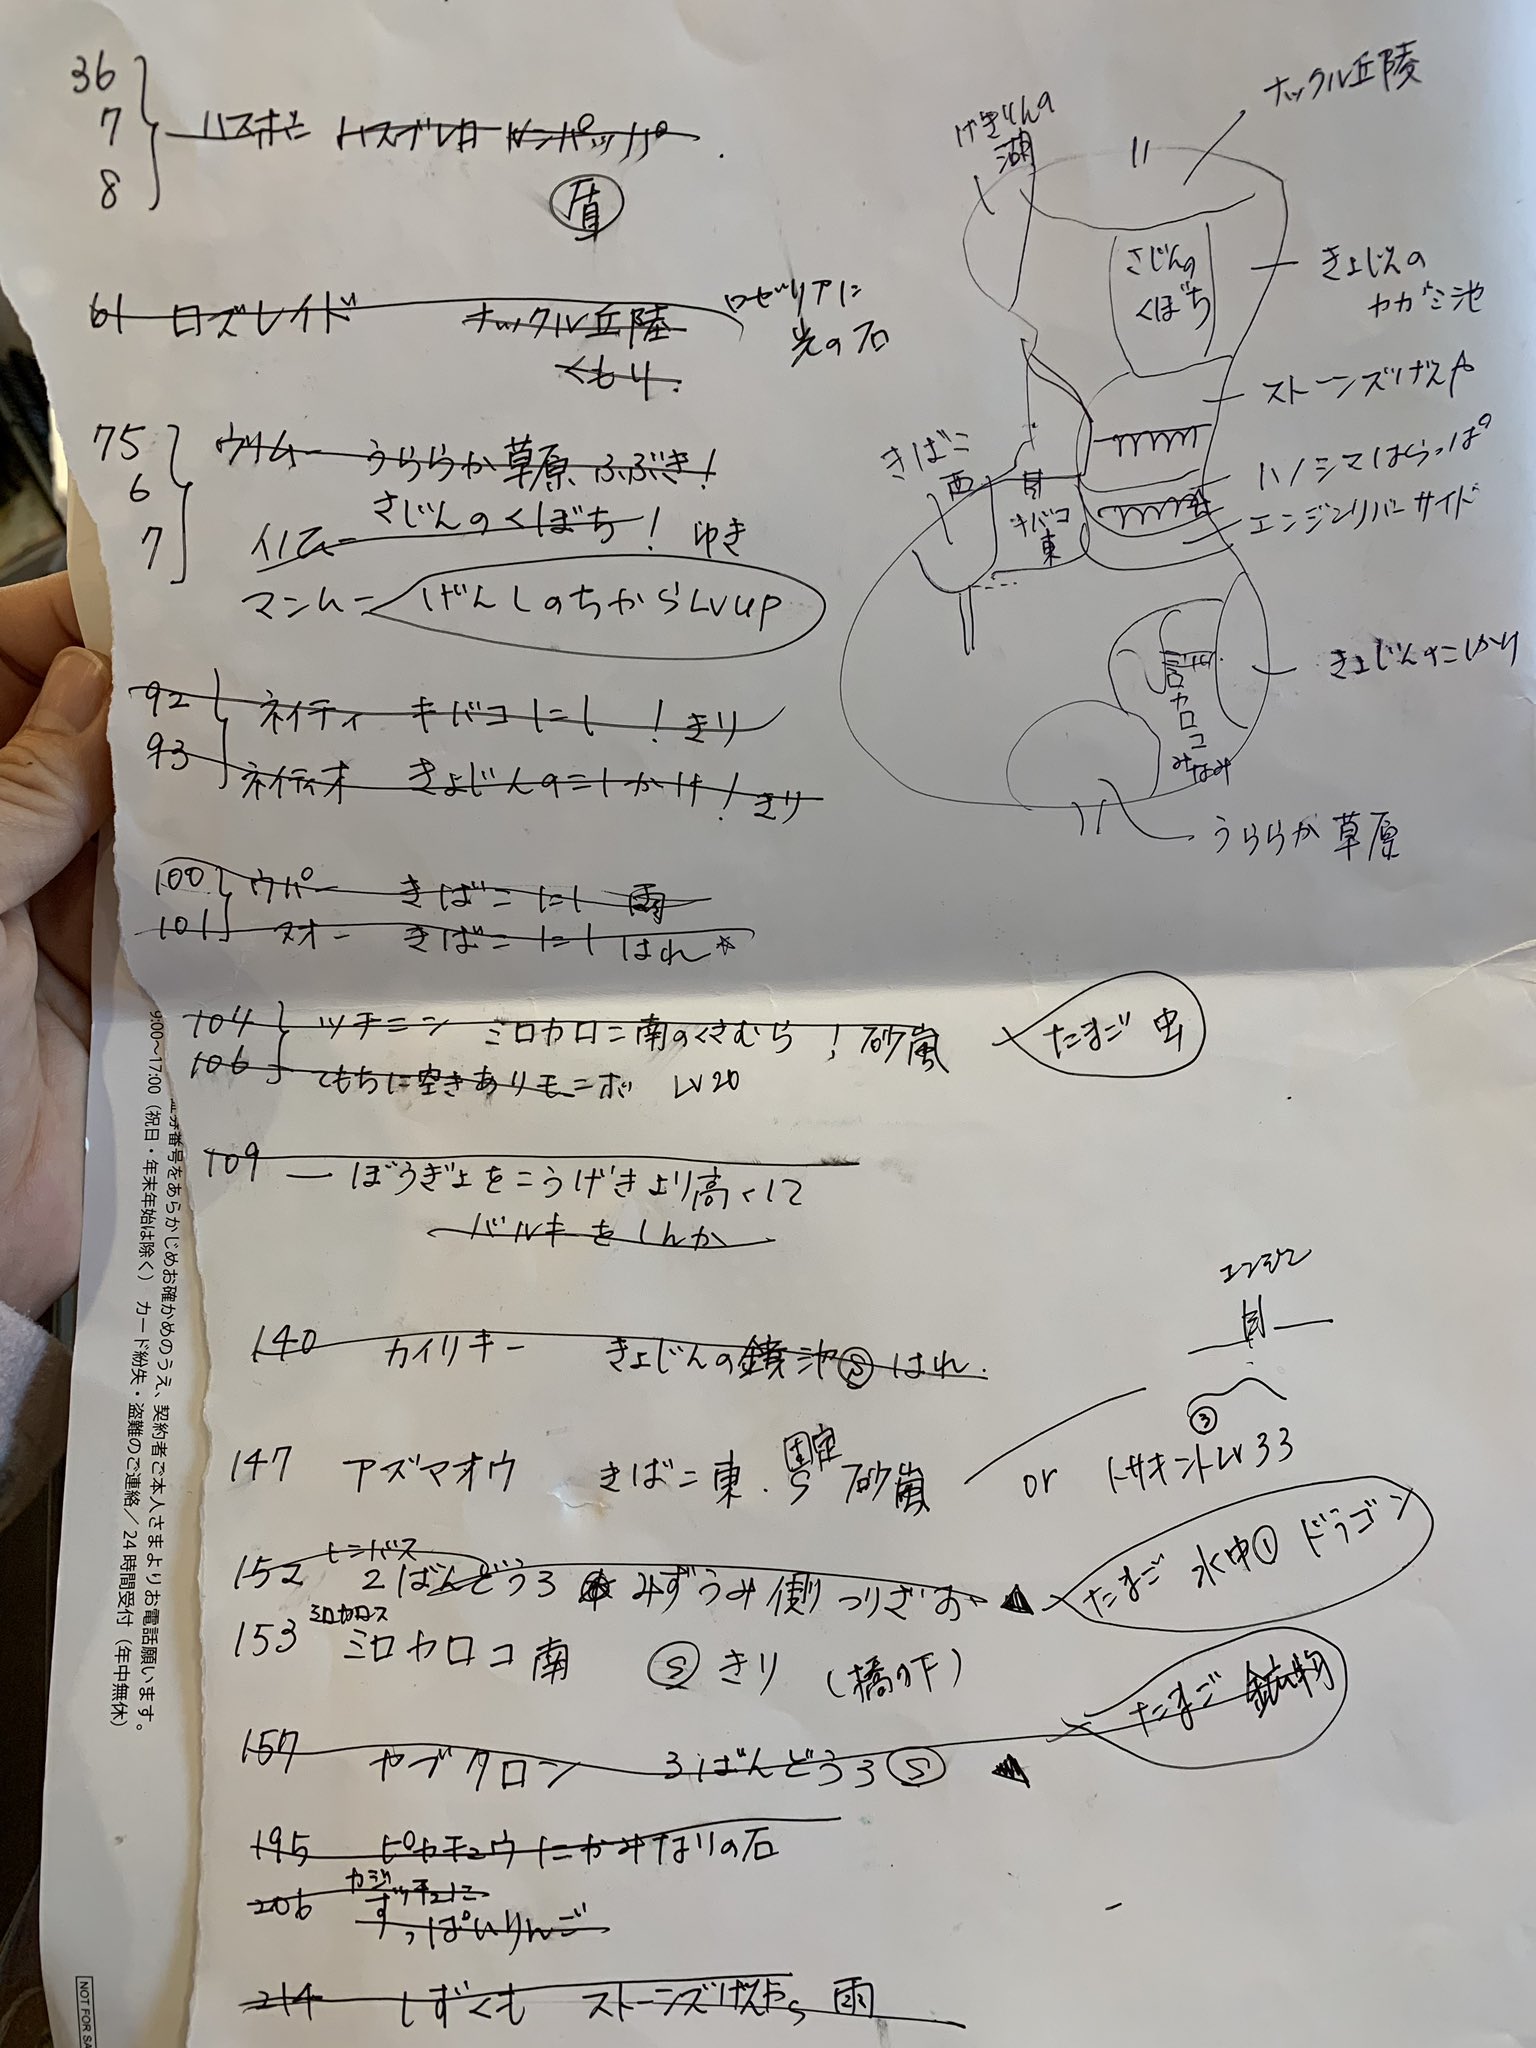 36
7
8
ハスボー ハスブレロ ルンパッパ
盾
61 ロズレイド ナックル丘陵
くもり
ロゼリアに
光の石
75
6
7
ウリムー うららか草原 ふぶき!
さじんのくぼち! ゆき
イノムー
マンムー げんしのちからLvup
92 ネイティ キバコにし! きり
93 ネイティオ きょじんのこしかけ! きり
100 ウパー きばこにし 雨
101 ヌオー きばこにし はれ
104 ツチニン ミロカロコ南のくさむら! 砂嵐
たまご 虫
106 てもちに空きあり モニボ Lv20
109 ー ぼうぎょをこうげきより高くして
バルキーをしんか
140 カイリキー きょじんの鏡池 S はれ.
147 アズマオウ きばこ東. 固定 S 砂嵐
or トサキントLv33
エンジン
③
152 ヒンバス
2ばんどうろ みずうみ側 つりざお
たまご 水中① ドラゴン
153 ミロカロス
ミロカロコ南 S きり (橋の下)
157 ヤブクロン 3ばんどうろ S
たまご 鉱物
195 ピカチュウにかみなりの石
206 カジッチュに
すっぱいりんご
214 しずくも ストーンズげんや S 雨
げきりんの
湖
ナックル丘陵
さじんの
くぼち
きょじんの
カガミ池
ストーンズげんや
ハノシマはらっぱ
エンジンリバーサイド
きばこ
西
キバコ
東
きょじんのこしかけ
ミロカロコ
みなみ
うららか草原
番号をあらかじめお確かめのうえ、契約者ご本人さまよりお電話願います。
9:00〜17:00(祝日・年末年始は除く) カード紛失・盗難のご連絡/24時間受付(年中無休)
NOT FOR SA